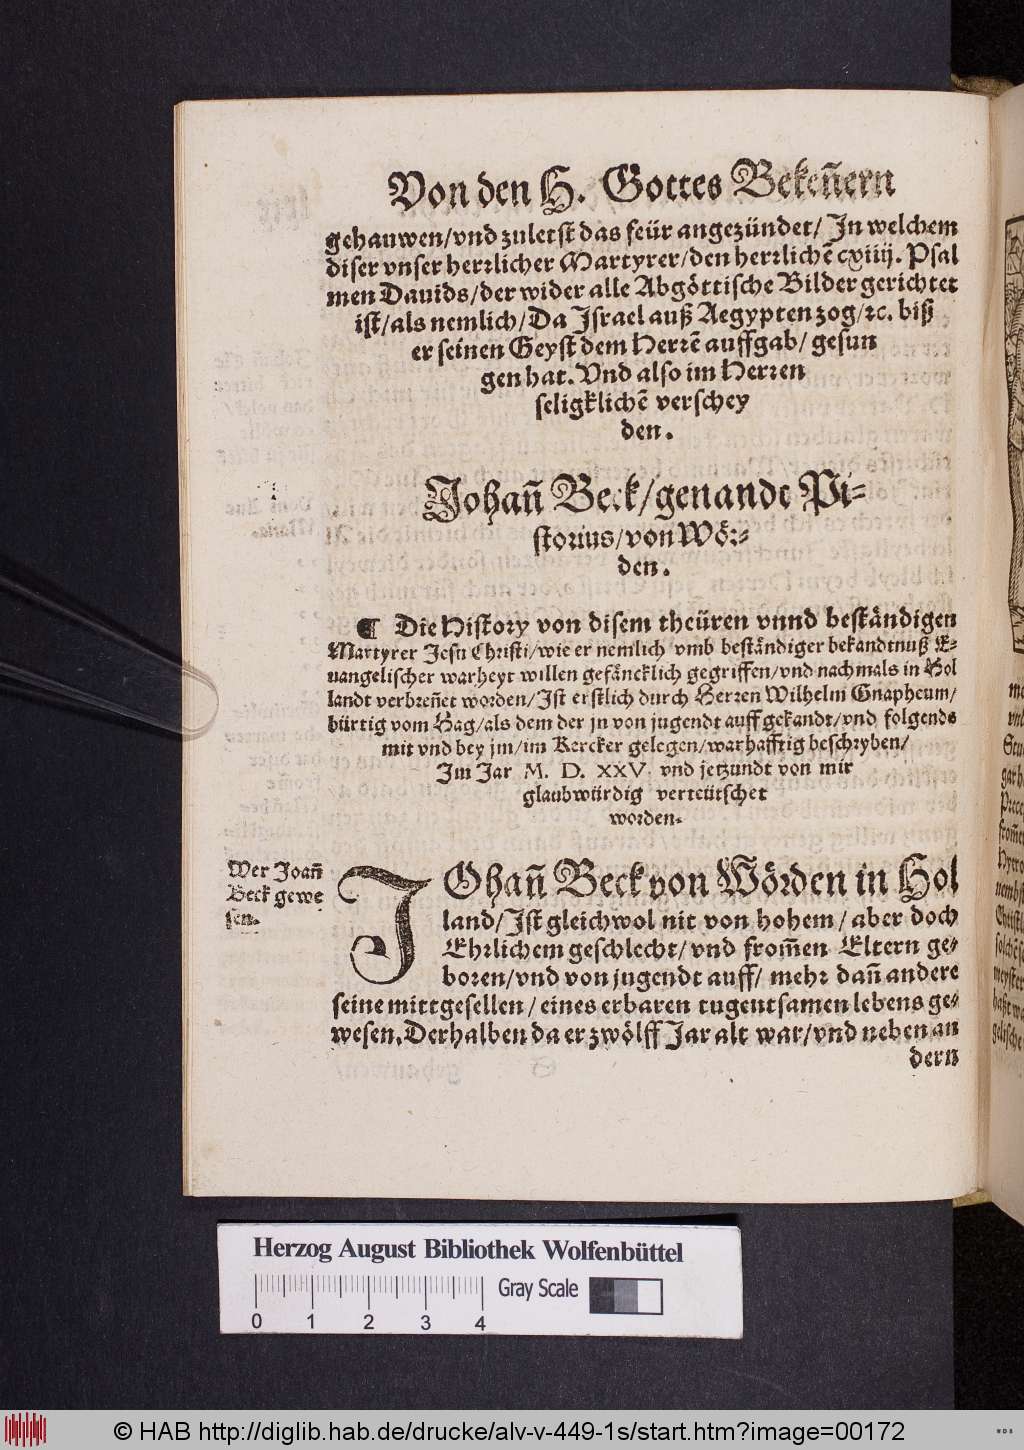 Von den H. Gottes Bekeñern
gehauwen/vnd zuletst das feür angezündet/ In welchem
diser vnser herꝛlicher Martyrer/den herꝛlichẽ cxiiij. Psal
men Dauids/der wider alle Abgöttische Bilder gerichtet
ist/als nemlich/Da Israel auß Aegypten zog/ꝛc. biß
er seinen Geyst dem Herꝛẽ auffgab/ gesun
gen hat. Vnd also im Herꝛen
seligklichẽ verschey
den.
Johañ Beck/genandt Pi-
storius/von Wör-
den.
¶ Die History von disem theüren vnnd beständigen
Martyrer Jesu Christi/wie er nemlich vmb beständiger bekandtnuß E-
uangelischer warheyt willen gefäncklich gegriffen/vnd nachmals in Hol
landt verbreñet worden/Ist erstlich durch Herꝛen Wilhelm Gnapheum/
bürtig vom Hag/als dem der jn von jugendt auff gekandt/vnd folgends
mit vnd bey jm/im Kercker gelegen/warhafftig beschryben/
Im Jar M. D. XXV. vnd jetzundt von mir
glaubwürdig verteütschet
worden.
Wer Joañ
Beck gewe
sen.
JOhañ Beck von Wörden in Hol
land/Ist gleichwol nit von hohem/ aber doch
Ehrlichem geschlecht/ vnd from̃en Eltern ge-
boren/vnd von jugendt auff/ mehr dañ andere
seine mittgesellen/ eines erbaren tugentsamen lebens ge-
wesen. Derhalben da er zwölff Jar alt war/vnd neben an
dern
Herzog August Bibliothek Wolfenbüttel
Gray Scale
0 1 2 3 4
© HAB http://diglib.hab.de/drucke/alv-v-449-1s/start.htm?image=00172